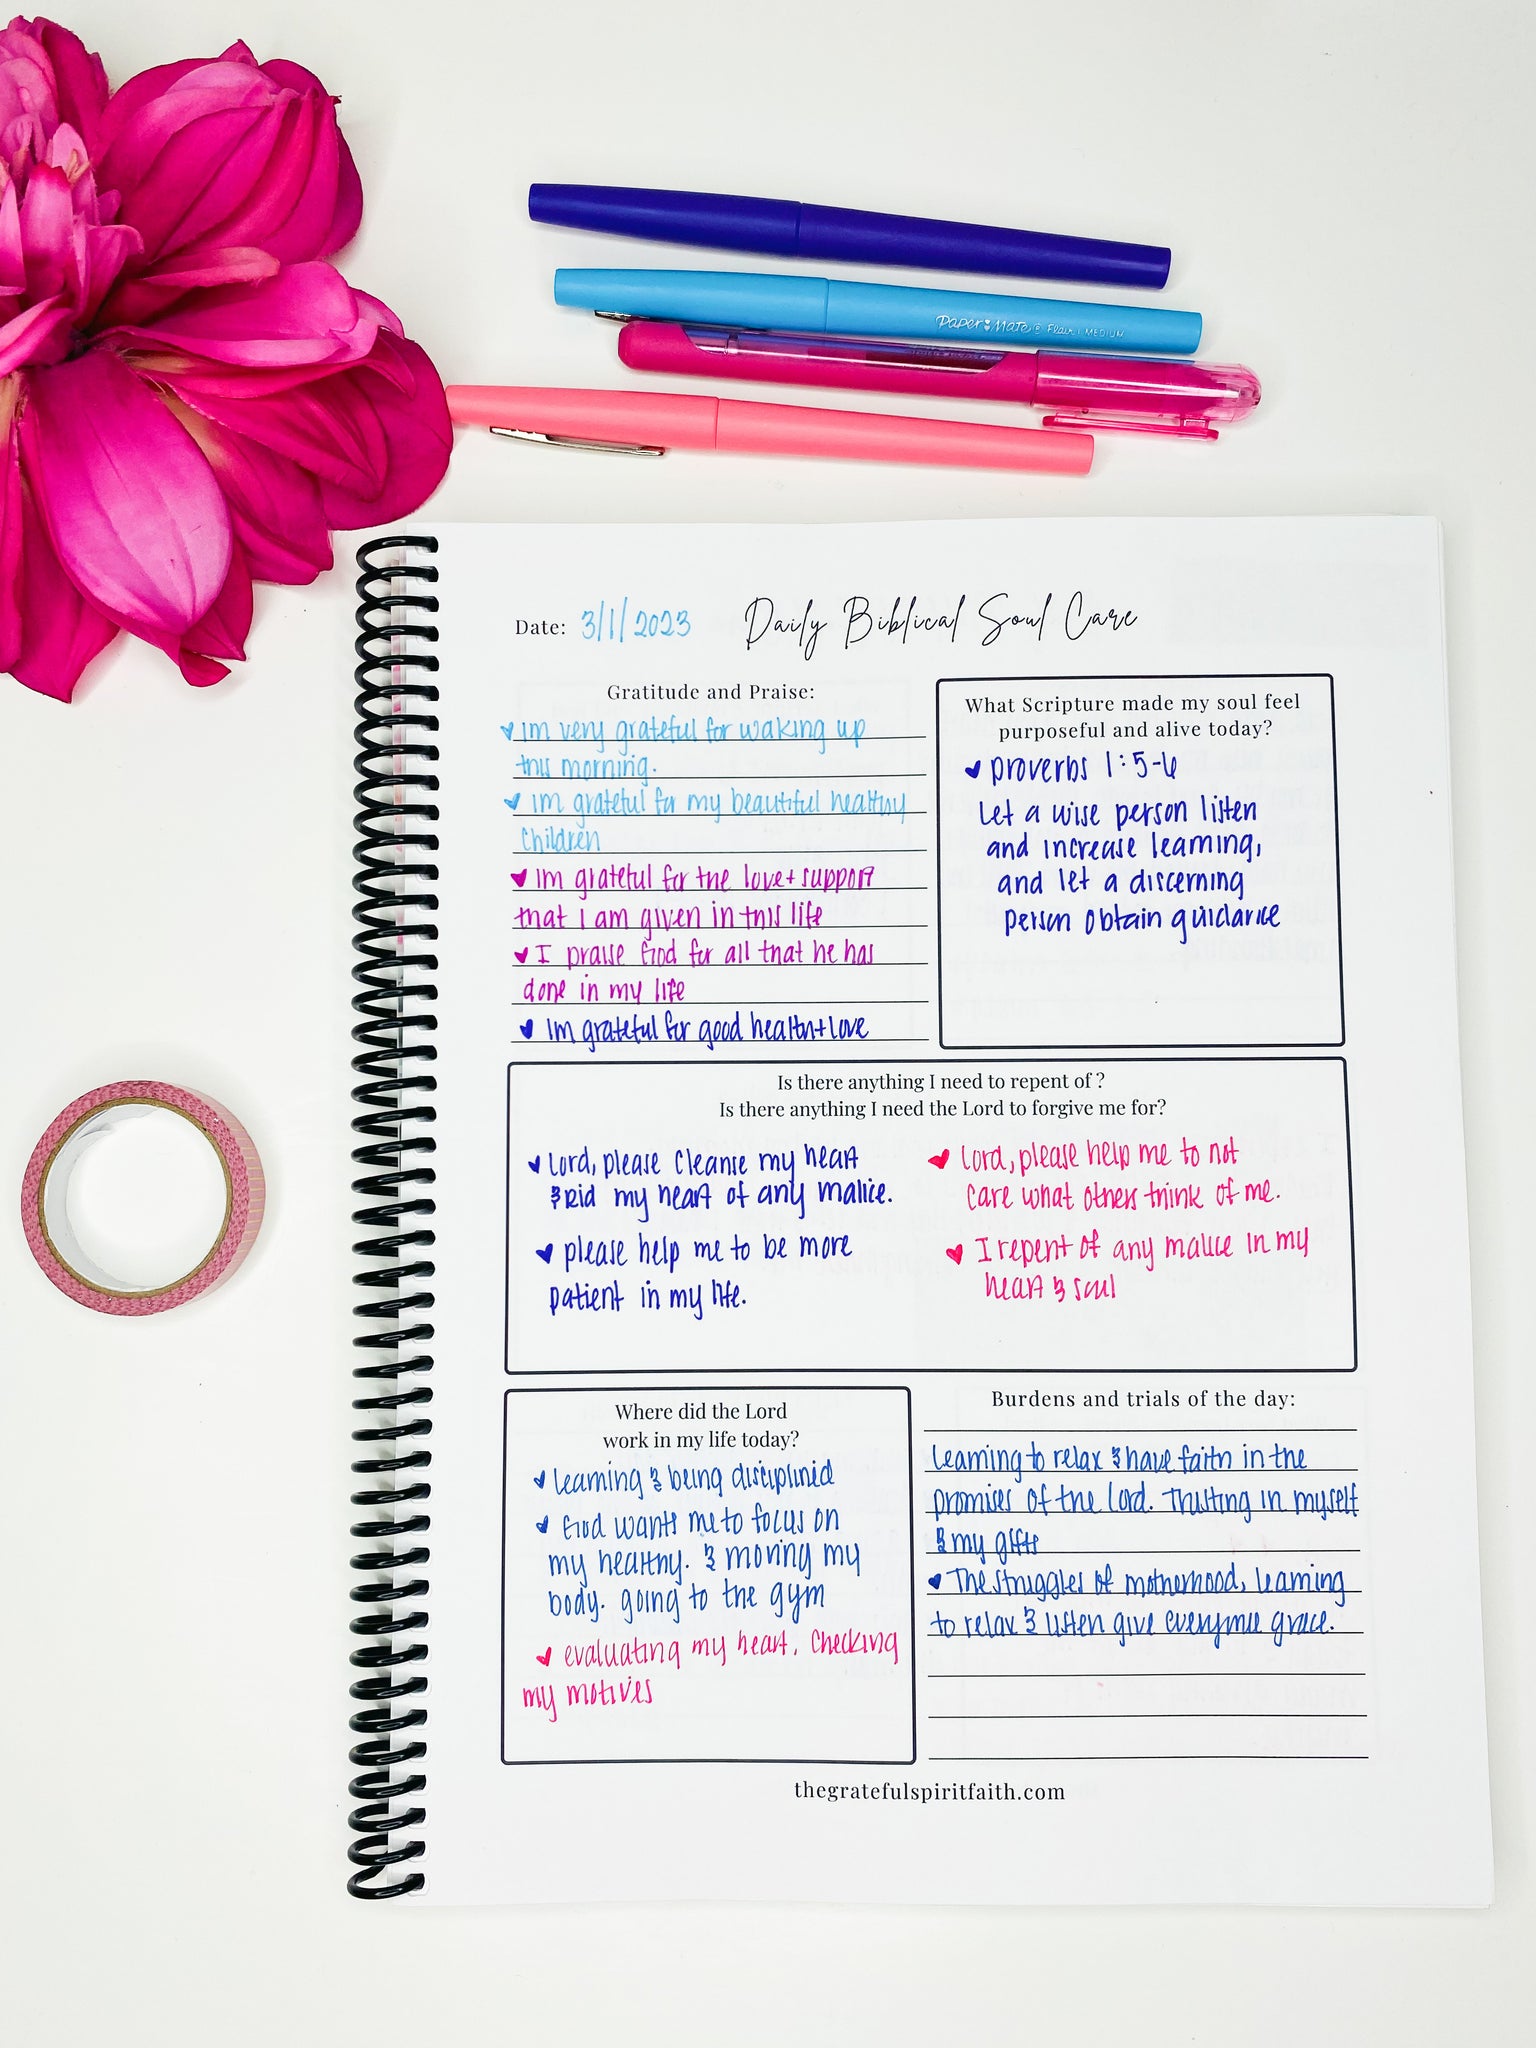 Paper Mate® Flair · MEDIUM
Date: 3/1/2023
Daily Biblical Soul Care
Gratitude and Praise:
♥ Im very grateful for waking up
this morning.
♥ Im grateful for my beautiful healthy
children
♥ Im grateful for the love + support
that I am given in this life
♥ I praise God for all that he has
done in my life
♥ Im grateful for good health + love
What Scripture made my soul feel
purposeful and alive today?
♥ Proverbs 1:5-6
Let a wise person listen
and increase learning,
and let a discerning
person obtain guidance
Is there anything I need to repent of ?
Is there anything I need the Lord to forgive me for?
♥ Lord, please cleanse my heart
& rid my heart of any malice.
♥ please help me to be more
patient in my life.
♥ Lord, please help me to not
care what others think of me.
♥ I repent of any malice in my
heart & soul
Where did the Lord
work in my life today?
♥ Learning & being disciplined
♥ God wants me to focus on
my healthy. & moving my
body. going to the gym
♥ evaluating my heart. Checking
my motives
Burdens and trials of the day:
Learning to relax & have faith in the
promises of the Lord. Trusting in myself
& my gifts
♥ The struggles of motherhood, learning
to relax & listen give everyone grace.
thegratefulspiritfaith.com